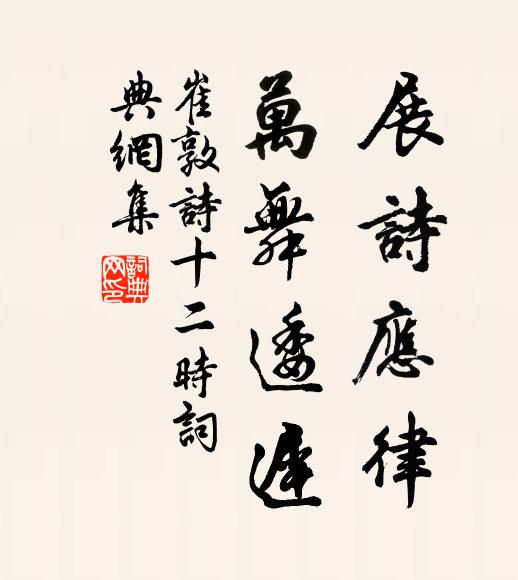 展詩應律
萬舞逶遲
崔敦詩十二時詞
典網集
詞典網印